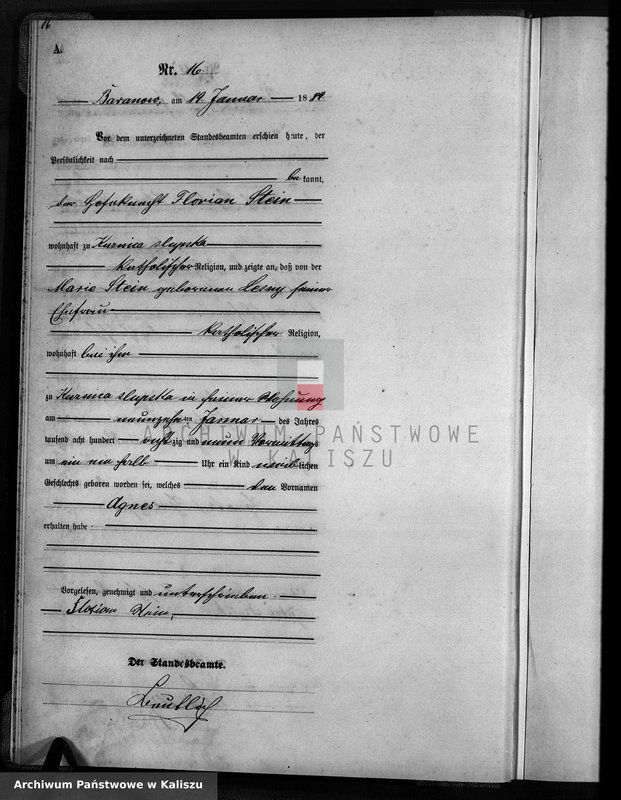 16
A.
Nr. 16.
Baranow, am 19 Januar 1889.
Vor dem unterzeichneten Standesbeamten erschien heute, der
Persönlichkeit nach
bekannt,
der Hofeknecht Florian Stein
wohnhaft zu Kuznica slupska
katholischer Religion, und zeigte an, daß von der
Marie Stein geborenen Lesny seiner
Ehefrau
katholischer Religion,
wohnhaft bei ihm
zu Kuznica slupska in seiner Wohnung
am neunzehnten Januar des Jahres
tausend acht hundert achtzig und neun Vormittags
um ein ein halb Uhr ein Kind weiblichen
Geschlechts geboren worden sei, welches den Vornamen
Agnes
erhalten habe
Vorgelesen, genehmigt und unterschrieben.
Florian Stein,
Der Standesbeamte.
ARCHIWUM PAŃSTWOWE
W KALISZU
Archiwum Państwowe w Kaliszu